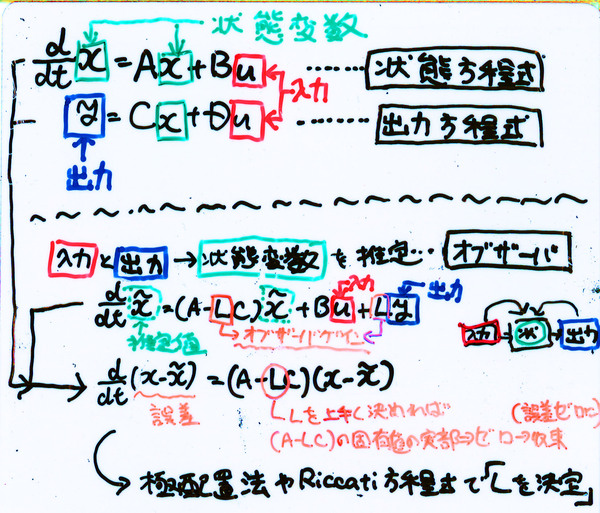 状態変数
d/dt x = Ax + Bu ‥‥‥ 状態方程式
入力
y = Cx + Du ‥‥‥ 出力方程式
出力
入力と出力 → 状態変数を推定‥‥ オブザーバ
入力 出力
d/dt x̃ = (A-LC)x̃ + Bu + Ly
推定値 オブザーバゲイン
入力 状 出力
d/dt (x-x̃) = (A-LC)(x-x̃)
誤差 Lを上手く決めれば (誤差ゼロに)
(A-LC)の固有値の実部
極配置法やRiccati方程式で「Lを決定」